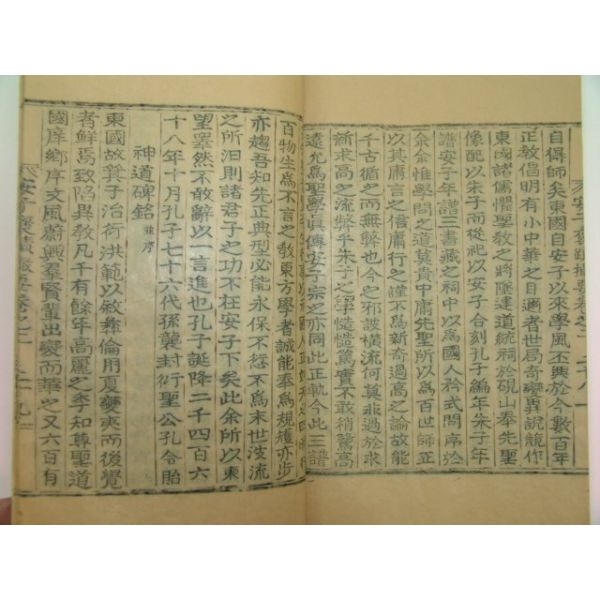 自得師矣東國自安子以來學風丕興於今數百年
正教倡明有小中華之目邇者世局奇變異説競作
東國諸儒懼聖教之將墜建道統祠於硯山奉先聖
像配以朱子而從祀以安子合刻孔子編年朱子年
譜安子年譜三書藏之祠中以爲國人矜式問序於
余余惟學問之道莫貴中庸先聖所以爲百世師正
以其庸言之信庸行之謹不爲新奇過高之論故能
千古循之而無弊也今之邪詖橫流何莫非過於求
新求高之流弊乎朱子慥慥篤實不敢稍騖高
遠允爲聖學眞傳安子宗之亦同此正軌今此三譜
百物生爲不言之教東方學者誠能奉爲規矱亦步
亦趨吾知先正典型必能永保不愆不爲末世波流
之所汩則諸君子之功不在安子下矣此余所以東
望睪然不敢辭以一言進也孔子誕降二千四百六
十八年十月孔子七十六代孫襲封衍聖公孔令貽
神道碑銘 並序
東國故箕子治洪範以敘彝倫用夏變夷而後覺
者鮮焉致陷異教凡千有餘年高麗之季知尊聖道
國庠鄉序文風蔚興羣賢輩出變而華之又六百有